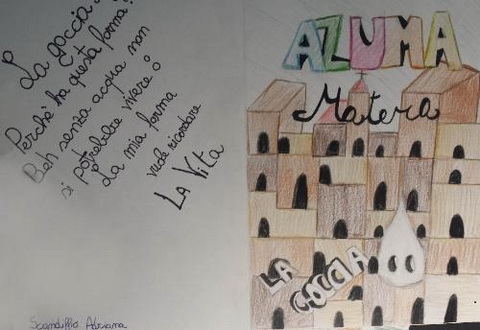 La goccia
Perchè ha questa forma?
Beh senza acqua non
si potrebbe vivere
La mia forma
vuole ricordare
LA VITA
Scandiffio Adriana
AZUMA
Matera
LA
GOCCIA